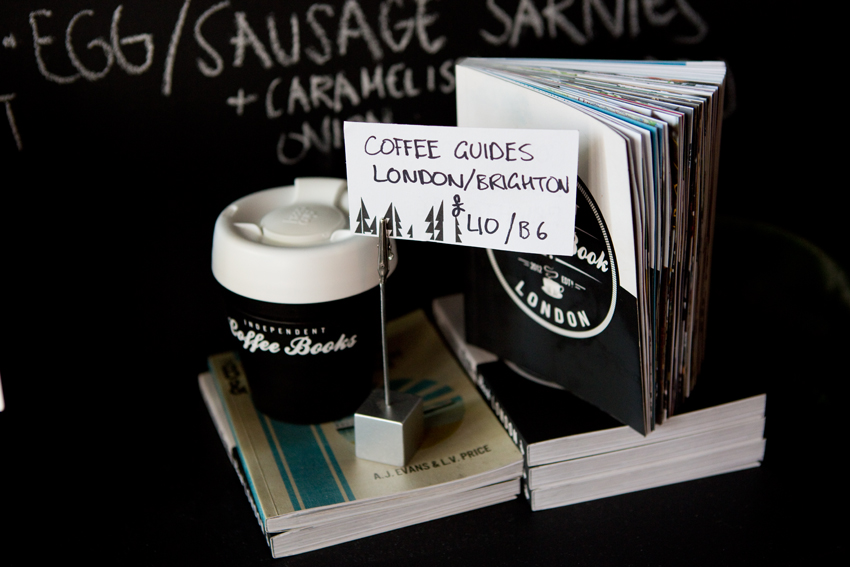 EGG/SAUSAGE SARNIES
+ CARAMELIS
ONION
COFFEE GUIDES
LONDON/BRIGHTON
£ L10/B6
INDEPENDENT
Coffee Books
Book
2012 ESTD
LONDON
A.J. EVANS & L.V. PRICE